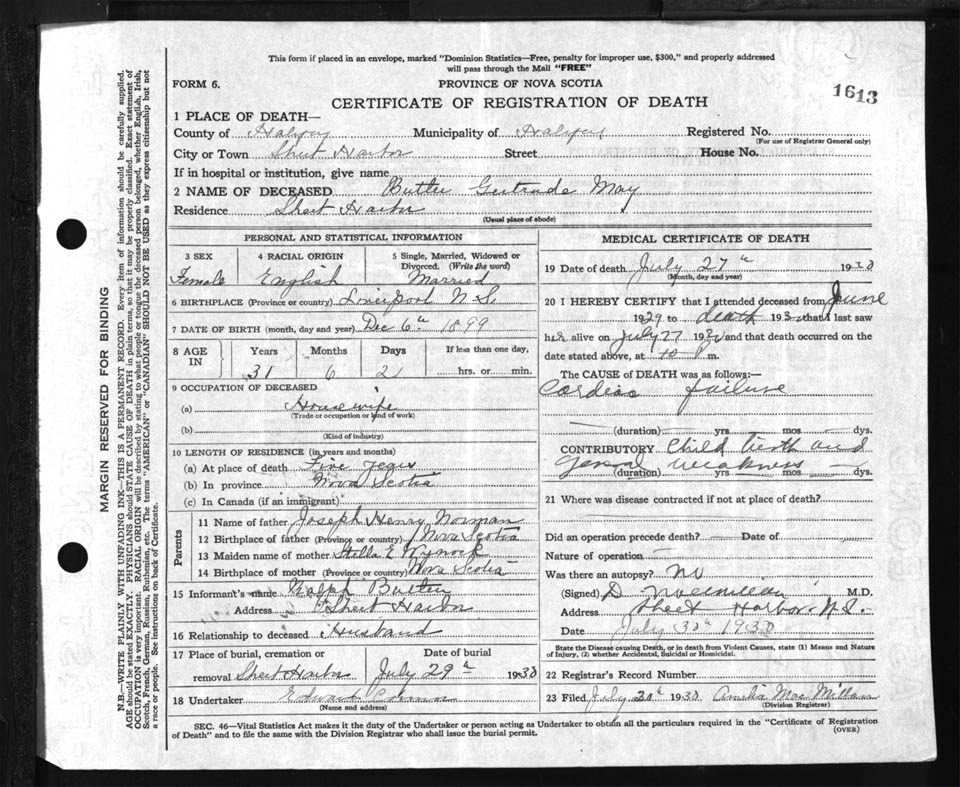 This form if placed in an envelope, marked "Dominion Statistics—Free, penalty for improper use, $300," and properly addressed
will pass through the Mail "FREE"
FORM 6.
PROVINCE OF NOVA SCOTIA
1613
CERTIFICATE OF REGISTRATION OF DEATH
1 PLACE OF DEATH—
County of Halifax Municipality of Halifax Registered No.
(For use of Registrar General only)
City or Town Sheet Harbor Street House No.
If in hospital or institution, give name
2 NAME OF DECEASED Butler Gertrude May
Residence Sheet Harbor
(Usual place of abode)
PERSONAL AND STATISTICAL INFORMATION
3 SEX 4 RACIAL ORIGIN 5 Single, Married, Widowed or
Divorced. (Write the word)
Female English Married
6 BIRTHPLACE (Province or country) Liverpool N.S.
7 DATE OF BIRTH (month, day and year) Dec 6th 1899
8 AGE IN Years Months Days If less than one day,
31 6 21 hrs. or min.
9 OCCUPATION OF DECEASED
(a) House wife
(Trade or occupation or kind of work)
(b)
(Kind of industry)
10 LENGTH OF RESIDENCE (in years and months)
(a) At place of death Five years
(b) In province Nova Scotia
(c) In Canada (if an immigrant)
Parents
11 Name of father Joseph Henry Norman
12 Birthplace of father (Province or country) Nova Scotia
13 Maiden name of mother Stella E Wynock
14 Birthplace of mother (Province or country) Nova Scotia
15 Informant's name Ralph Butler
Address Sheet Harbor
16 Relationship to deceased Husband
17 Place of burial, cremation or Date of burial
removal Sheet Harbor July 29th 1930
18 Undertaker Edward
(Name and address)
MEDICAL CERTIFICATE OF DEATH
19 Date of death July 27th 1930
(Month, day and year)
20 I HEREBY CERTIFY that I attended deceased from June
1929 to death 193 that I last saw
her alive on July 27 1930 and that death occurred on the
date stated above, at 10 P m.
The CAUSE OF DEATH was as follows:
Cardiac failure
(duration) yrs. mos. dys.
CONTRIBUTORY Child birth and
general weakness
(duration) yrs. mos. dys.
21 Where was disease contracted if not at place of death?
Did an operation precede death? Date of
Nature of operation
Was there an autopsy? No
(Signed) D M.D.
Address Sheet Harbor N.S.
Date July 30th 1930
State the Disease causing Death, or in death from Violent Causes, state (1) Means and Nature
of Injury, (2) whether Accidental, Suicidal or Homicidal.
22 Registrar's Record Number
23 Filed July 30th 1930 Amelia Mac Millan
(Division Registrar)
SEC. 46—Vital Statistics Act makes it the duty of the Undertaker or person acting as Undertaker to obtain all the particulars required in the "Certificate of Registration
of Death" and to file the same with the Division Registrar who shall issue the burial permit.
(OVER)
MARGIN RESERVED FOR BINDING
N.B.—WRITE PLAINLY WITH UNFADING INK—THIS IS A PERMANENT RECORD. Every item of information should be carefully supplied.
AGE should be stated EXACTLY. PHYSICIANS should STATE CAUSE OF DEATH in plain terms, so that it may be properly classified. Exact statement of
OCCUPATION is very important. RACIAL ORIGIN will be described by stating to what people or tongue the deceased person belonged, whether English, Irish,
Scotch, French, German, Russian, Ruthenian, etc. The terms "AMERICAN" or "CANADIAN" SHOULD NOT BE USED as they express citizenship but not
a race or people. See instructions on back of Certificate.